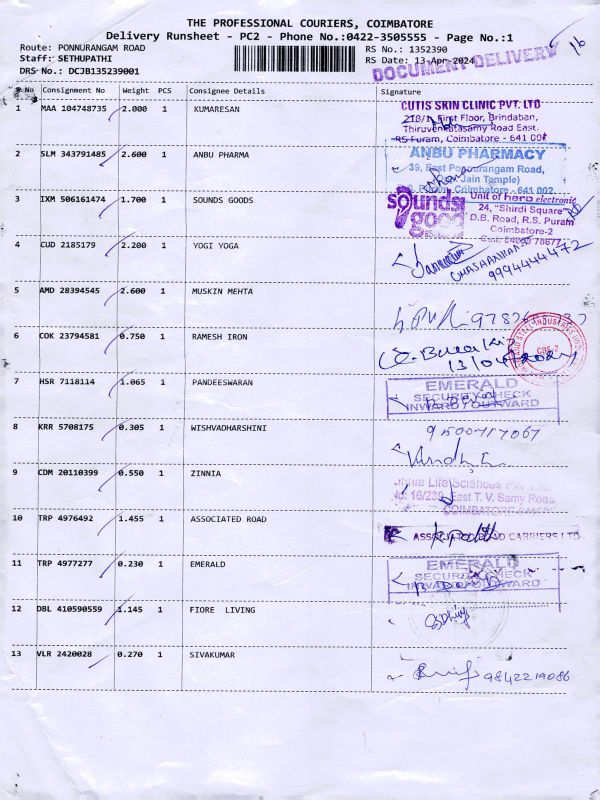 THE PROFESSIONAL COURIERS, COIMBATORE
Delivery Runsheet - PC2 - Phone No.:0422-3505555 - Page No.:1
Route: PONNURANGAM ROAD
RS No.: 1352390
Staff: SETHUPATHI
RS Date: 13-Apr-2024
DRS No.: DCJB135239001
DOCUMENT DELIVERY
16
S.No Consignment No Weight PCS Consignee Details Signature
1 MAA 104748735 2.000 1 KUMARESAN
CUTIS SKIN CLINIC PVT. LTD
218/1 First Floor, Brindaban,
Thiruvenkatasamy Road East,
RS Puram, Coimbatore - 641 002
2 SLM 343791485 2.600 1 ANBU PHARMA
ANBU PHARMACY
39, East Ponnurangam Road,
Jain Temple)
Puram, Coimbatore - 641 002
3 IXM 506161474 1.700 1 SOUNDS GOODS
sounds good
Unit of herb electronic
24, "Shirdi Square"
D.B. Road, R.S. Puram
Coimbatore-2
4 CUD 2185179 2.200 1 YOGI YOGA
9994444472
5 AMD 28394545 2.600 1 MUSKIN MEHTA
6 COK 23794581 0.750 1 RAMESH IRON
13/04/2024
CBE-2
7 HSR 7118114 1.065 1 PANDEESWARAN
EMERALD
SECURITY CHECK
INWARD / OUTWARD
8 KRR 5708175 0.305 1 WISHVADHARSHINI
9500717067
9 CDM 20110399 0.550 1 ZINNIA
Life Sciences
No: 16/239, East T. V. Samy Road
COIMBATORE
10 TRP 4976492 1.455 1 ASSOCIATED ROAD
ASSOCIATED ROAD CARRIERS LTD
11 TRP 4977277 0.230 1 EMERALD
EMERALD
SECURITY CHECK
INWARD / OUTWARD
12 DBL 410590559 1.145 1 FIORE LIVING
13 VLR 2420028 0.270 1 SIVAKUMAR
9842219086